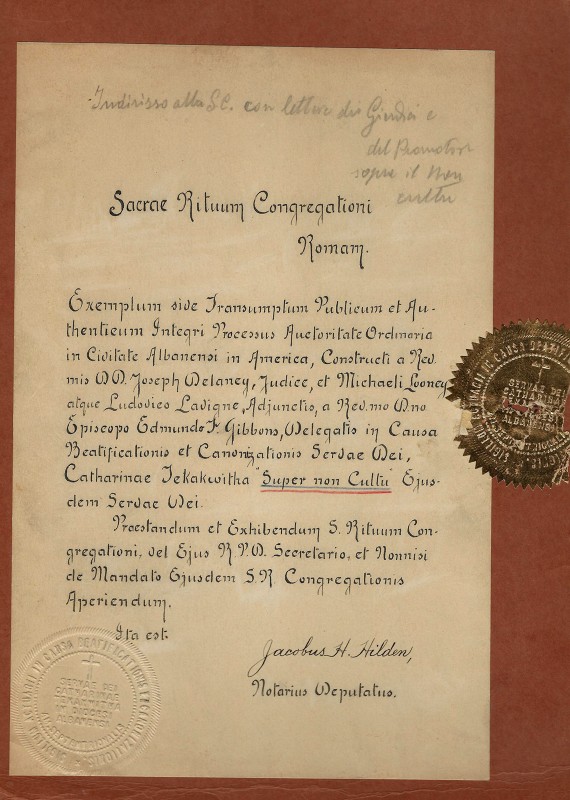 Indirisso alla S.C. con lettere dei Giudici e
del Promotor
sopra il Non
cultu
Sacrae Rituum Congregationi
Romam.
Exemplum sive Transumptum Publicum et Au-
thenticum Integri Processus Auctoritate Ordinaria
in Civitate Albanensi in America, Constructi a Rev.
mis DD. Joseph Delaney, Judice, et Michaeli Looney
atque Ludovico Lavigne, Adjunctis, a Rev.mo D.no
Episcopo Edmundo F. Gibbons, Delegatis in Causa
Beatificationis et Canonizationis Servae Dei,
Catharinae Tekakwitha "Super non Cultu" Ejus-
dem Servae Dei.
Praestandum et Exhibendum S. Rituum Con-
gregationi, vel Ejus R.P.D. Secretario, et Nonnisi
de Mandato Ejusdem S.R. Congregationis
Aperiendum.
Ita est.
Jacobus H. Hilden,
Notarius Deputatus.
SERVAE DEI
CATHARINAE